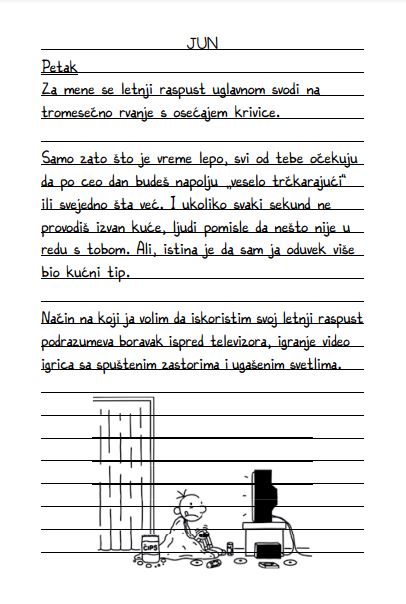 JUN
Petak
Za mene se letnji raspust uglavnom svodi na
tromesečno rvanje s osećajem krivice.
Samo zato što je vreme lepo, svi od tebe očekuju
da po ceo dan budeš napolju „veselo trčkarajući“
ili svejedno šta već. I ukoliko svaki sekund ne
provodiš izvan kuće, ljudi pomisle da nešto nije u
redu s tobom. Ali, istina je da sam ja oduvek više
bio kućni tip.
Način na koji ja volim da iskoristim svoj letnji raspust
podrazumeva boravak ispred televizora, igranje video
igrica sa spuštenim zastorima i ugašenim svetlima.
ČIPS